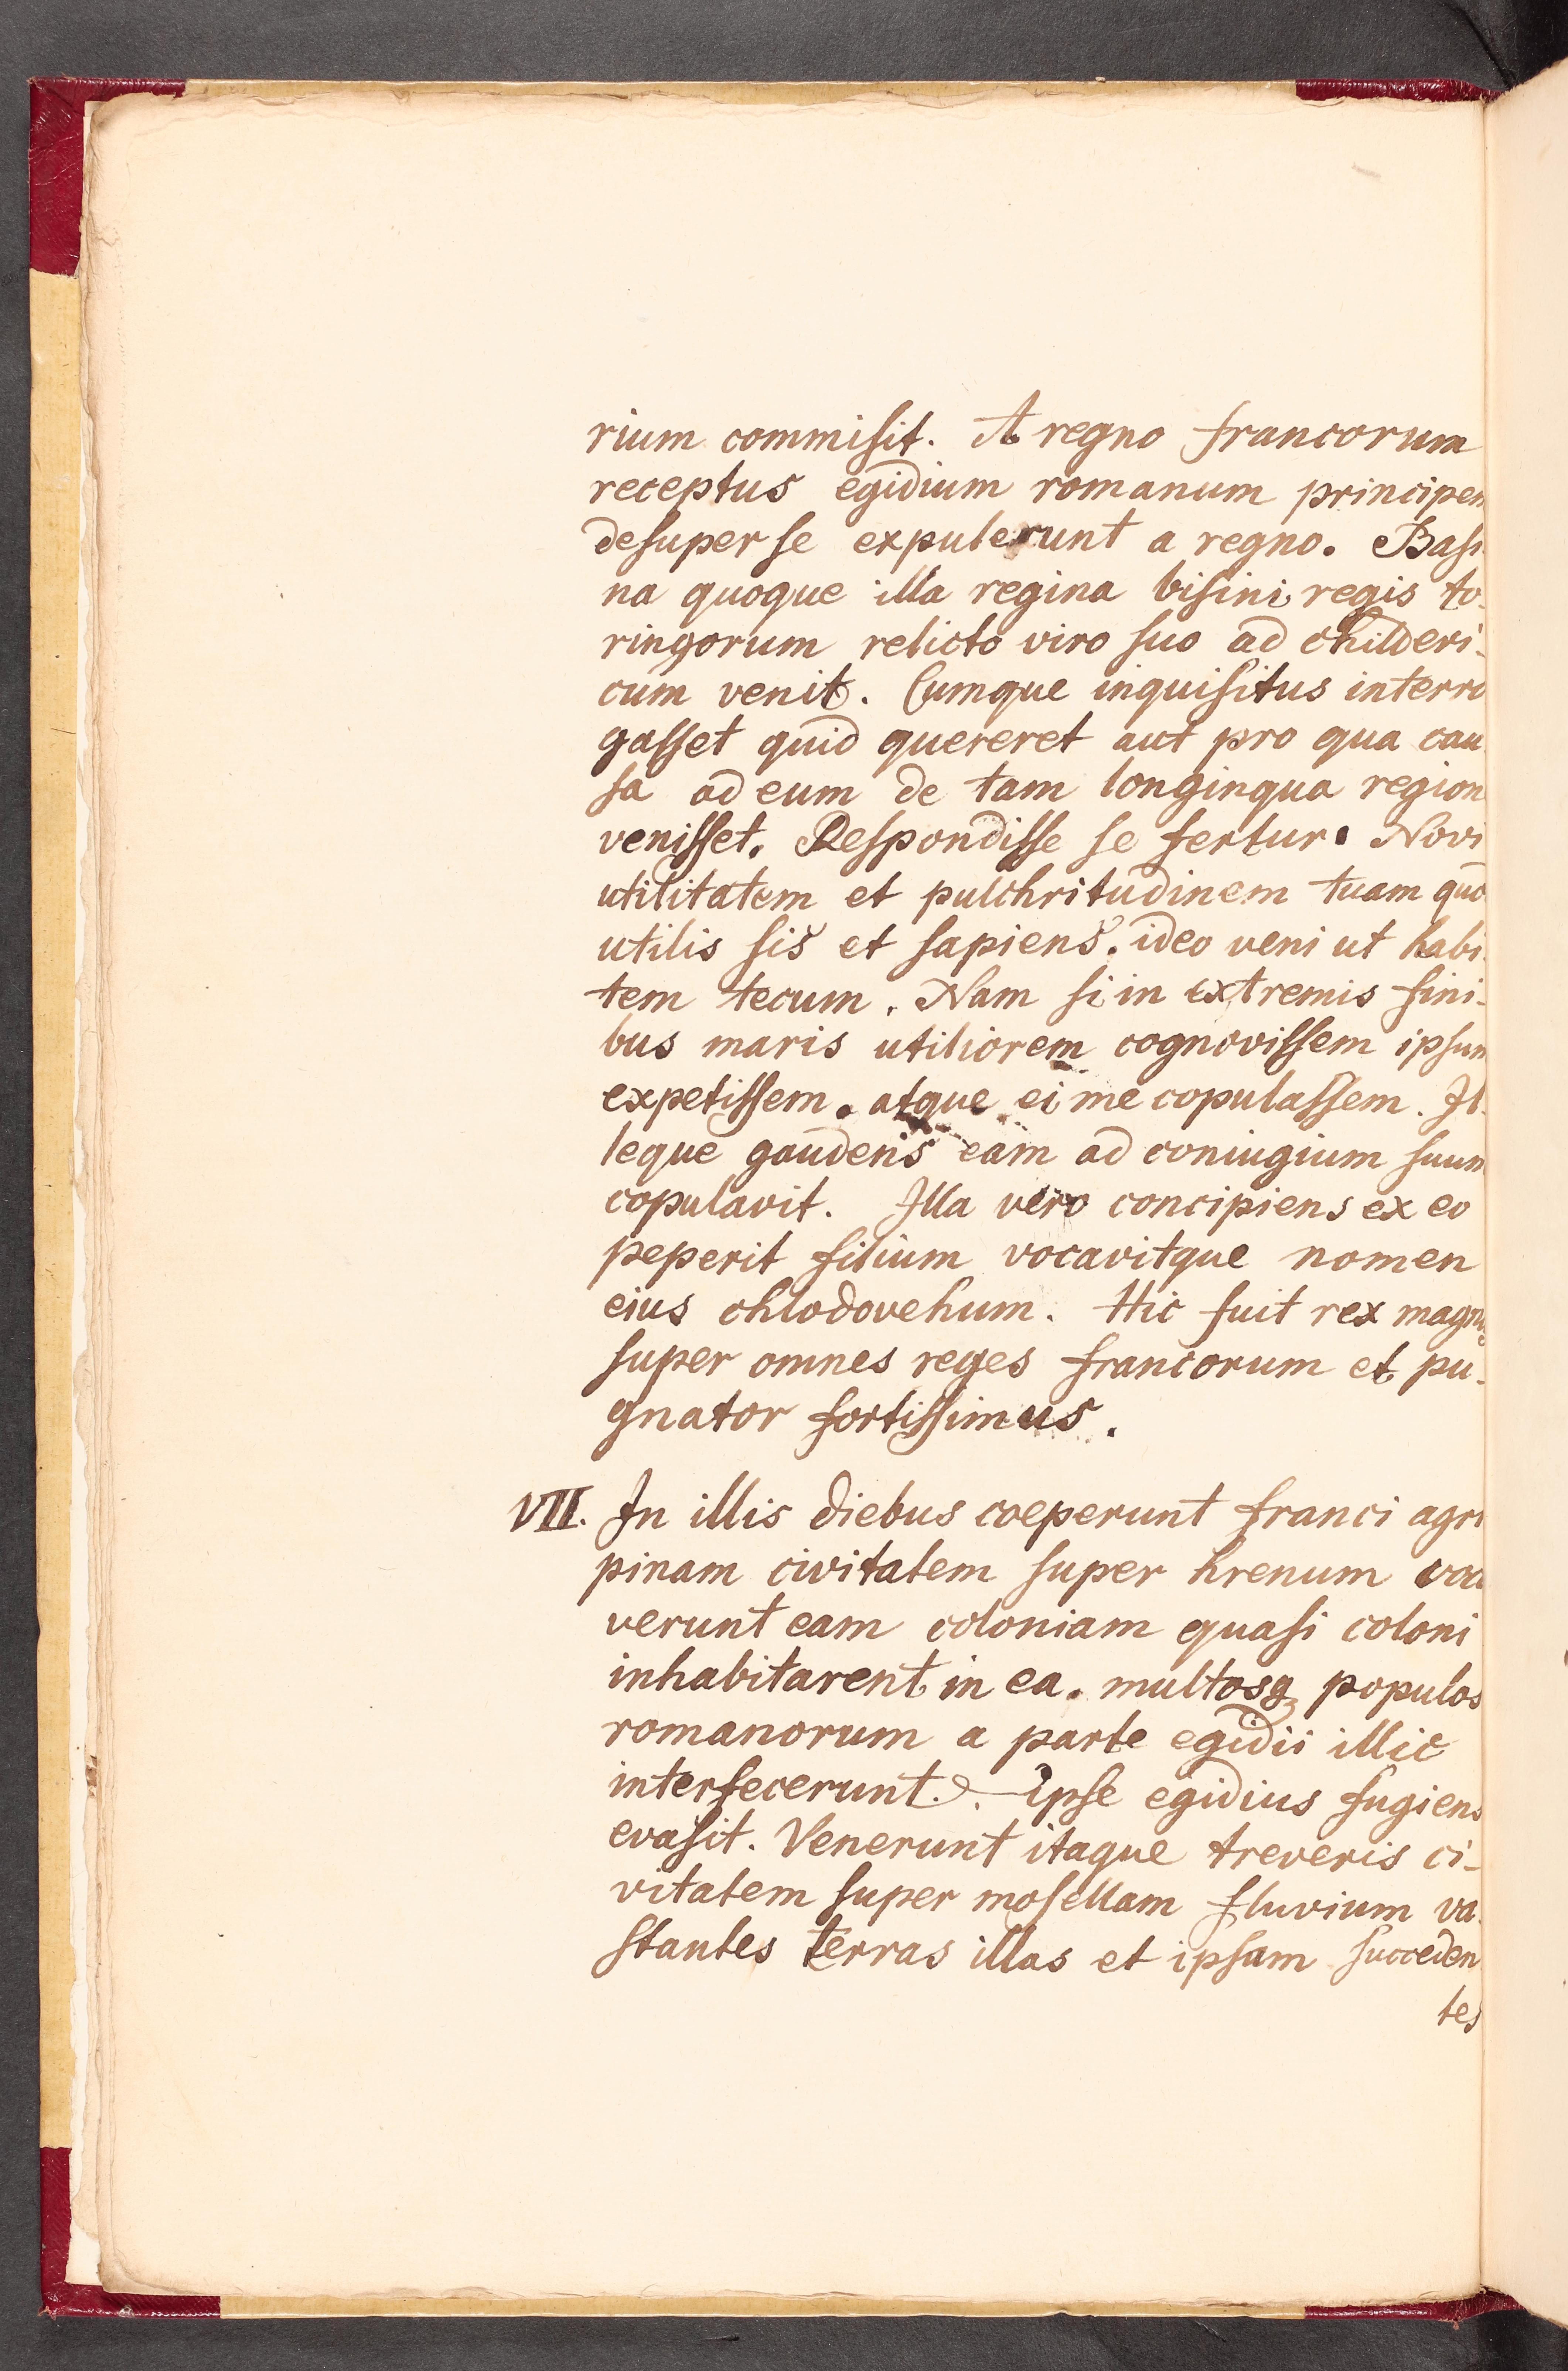 rium commisit. A regno francorum
receptus egidium romanum principem
desuper se expulerunt a regno. Basi
na quoque illa regina bisini regis to-
ringorum relicto viro suo ad childeri-
cum venit. Cumque inquisitus interro
gasset quid quereret aut pro qua cau
sa ad eum de tam longinqua region
venisset. Respondisse se fertur. Novi
utilitatem et pulchritudinem tuam quo
utilis sis et sapiens. ideo veni ut habi-
tem tecum. Nam si in extremis fini-
bus maris utiliorem cognovissem ipsum
expetissem. atque ei me copulassem. Il-
leque gaudens eam ad coniugium suum
copulavit. Illa vero concipiens ex eo
peperit filium vocavitque nomen
eius chlodovehum. Hic fuit rex magnus
super omnes reges francorum et pu-
gnator fortissimus.
VII. In illis diebus coeperunt franci agri
pinam civitatem super hrenum voca
verunt eam coloniam quasi coloni
inhabitarent in ea. multosq populos
romanorum a parte egidii illic
interfecerunt. Ipse egidius fugiens
evasit. Venerunt itaque treveris ci-
vitatem super mosellam fluvium va-
stantes terras illas et ipsam succeden
tes